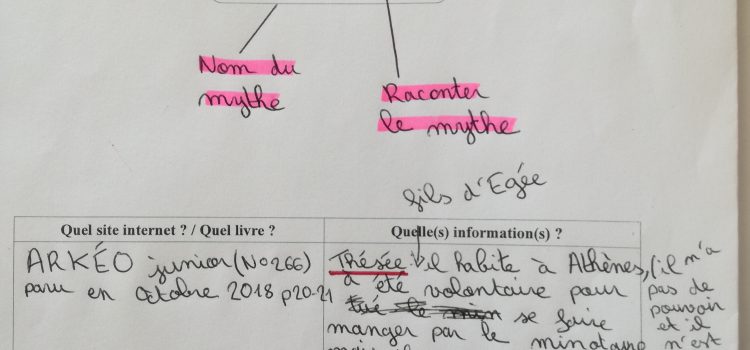 Nom du
mythe
Raconter
le mythe
fils d'Egée
Quel site internet ? / Quel livre ?
Quelle(s) information(s) ?
ARKÉO junior (No 266)
paru en Octobre 2018 p20-21
Thésée il habite à Athènes, (il m'a
a été volontaire pour pas de
tué le se faire pouvoir
manger par le minotaure et il
n'est